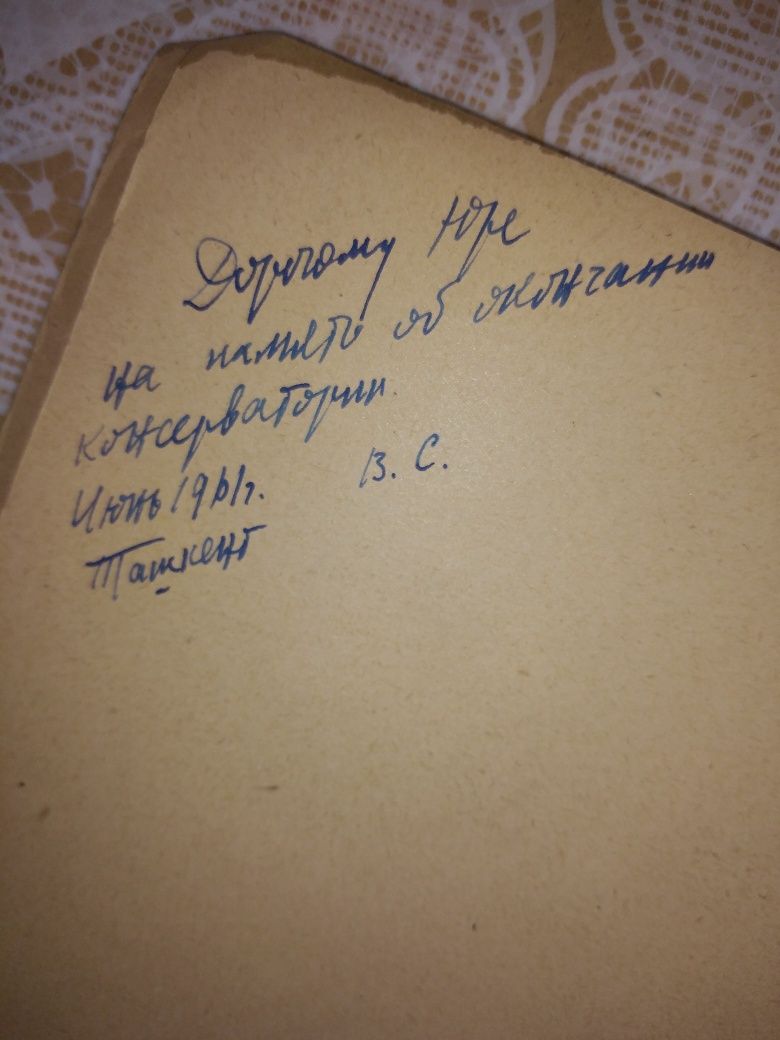 Дорогому Юре
на память об окончании
консерватории
Июнь 1961г. В. С.
Ташкент